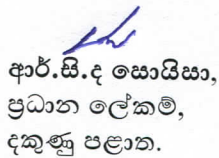 ආර්.සි.ද සොයිසා,
ප්‍රධාන ලේකම්,
දකුණු පළාත.